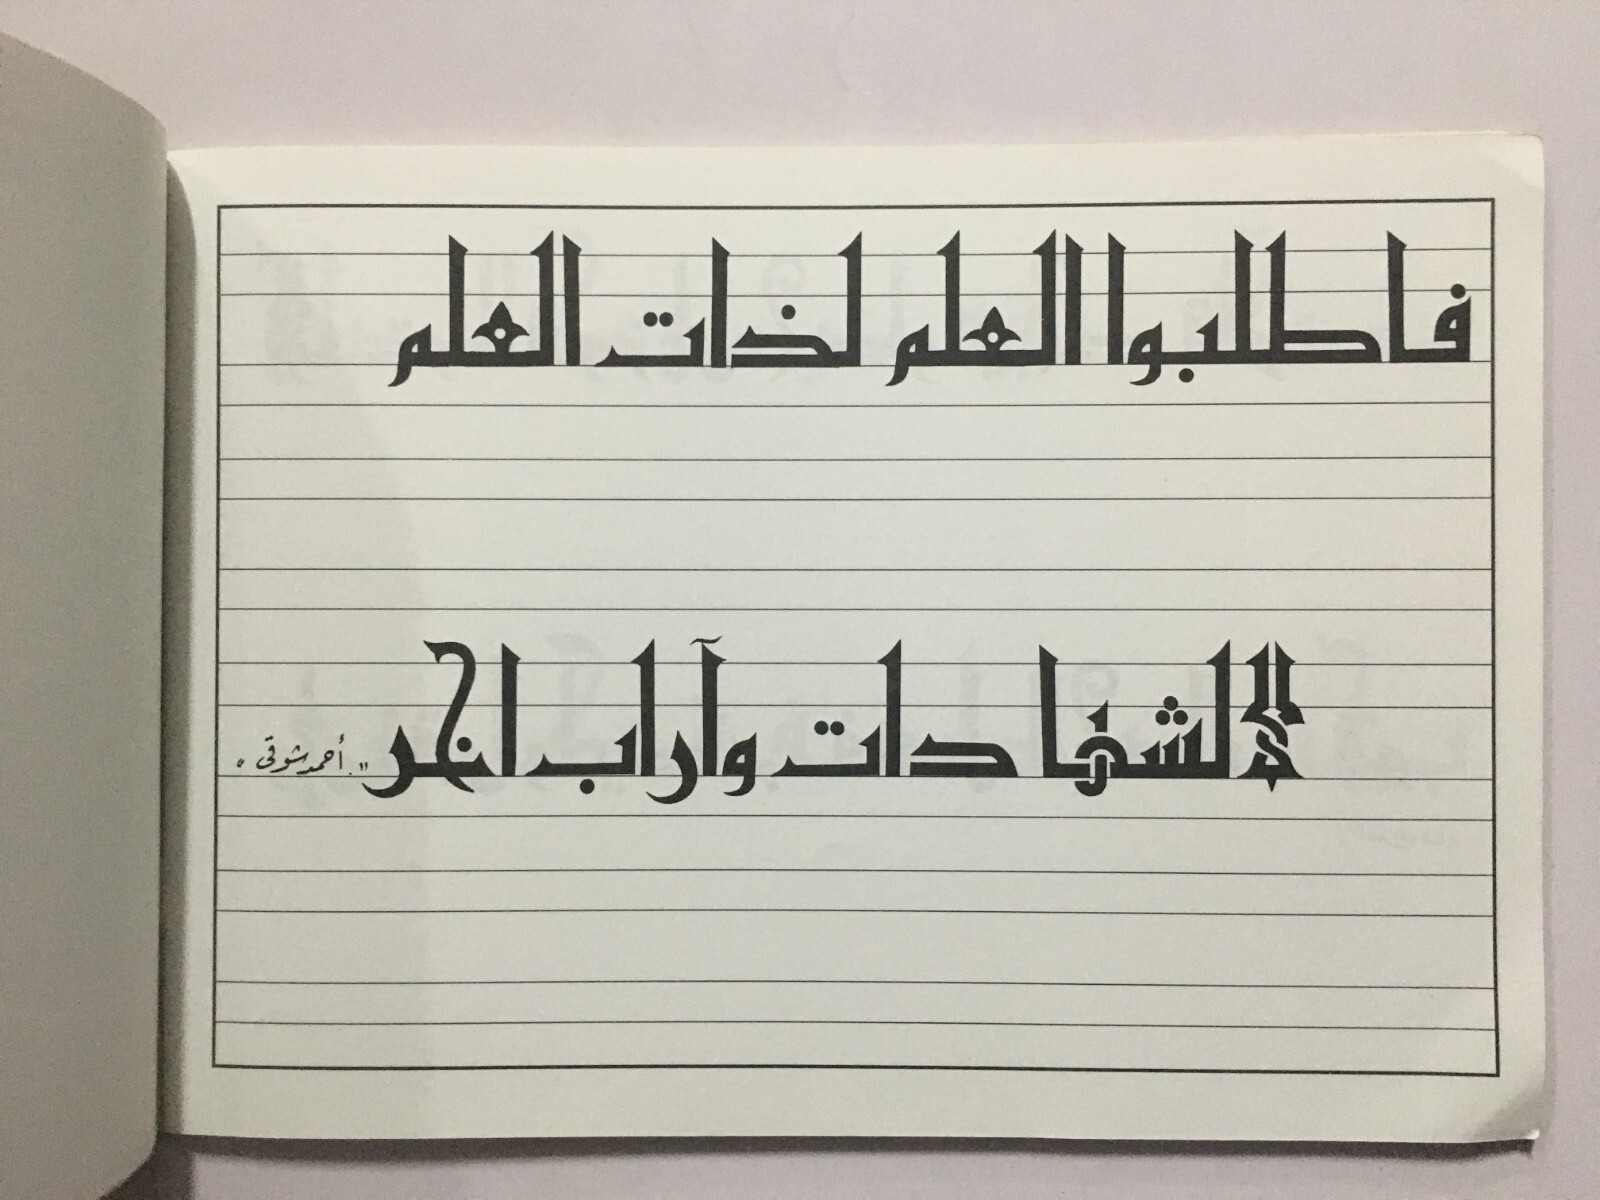 فاطلبوا العلم لذات العلم
لا لشهادات وآراب اخر "أحمد شوقى"